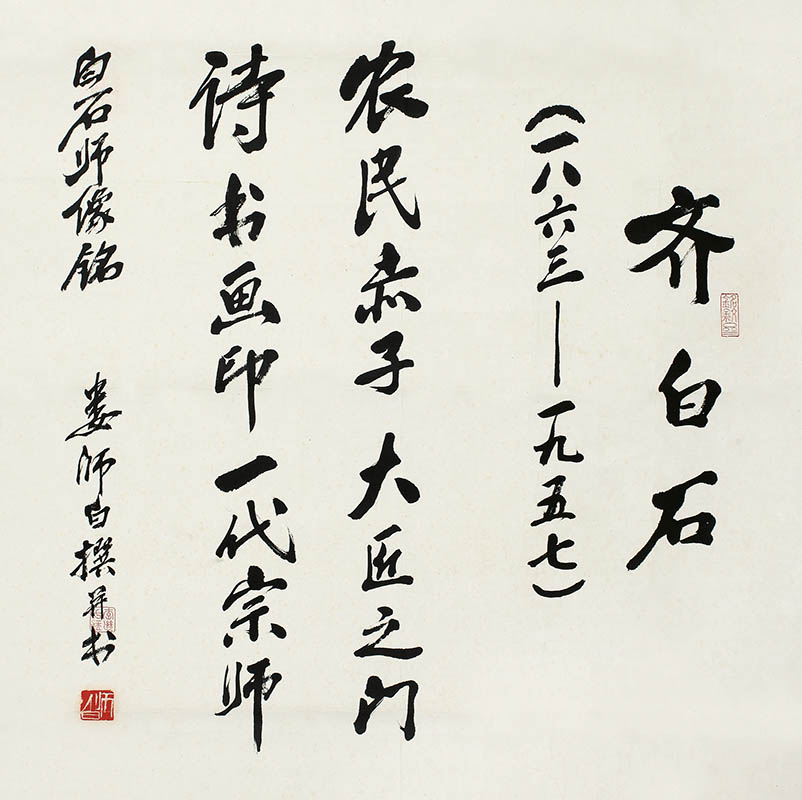 齐白石
（一八六三—一九五七）
农民赤子 大匠之门
诗书画印 一代宗师
白石师像铭 娄师白撰并书